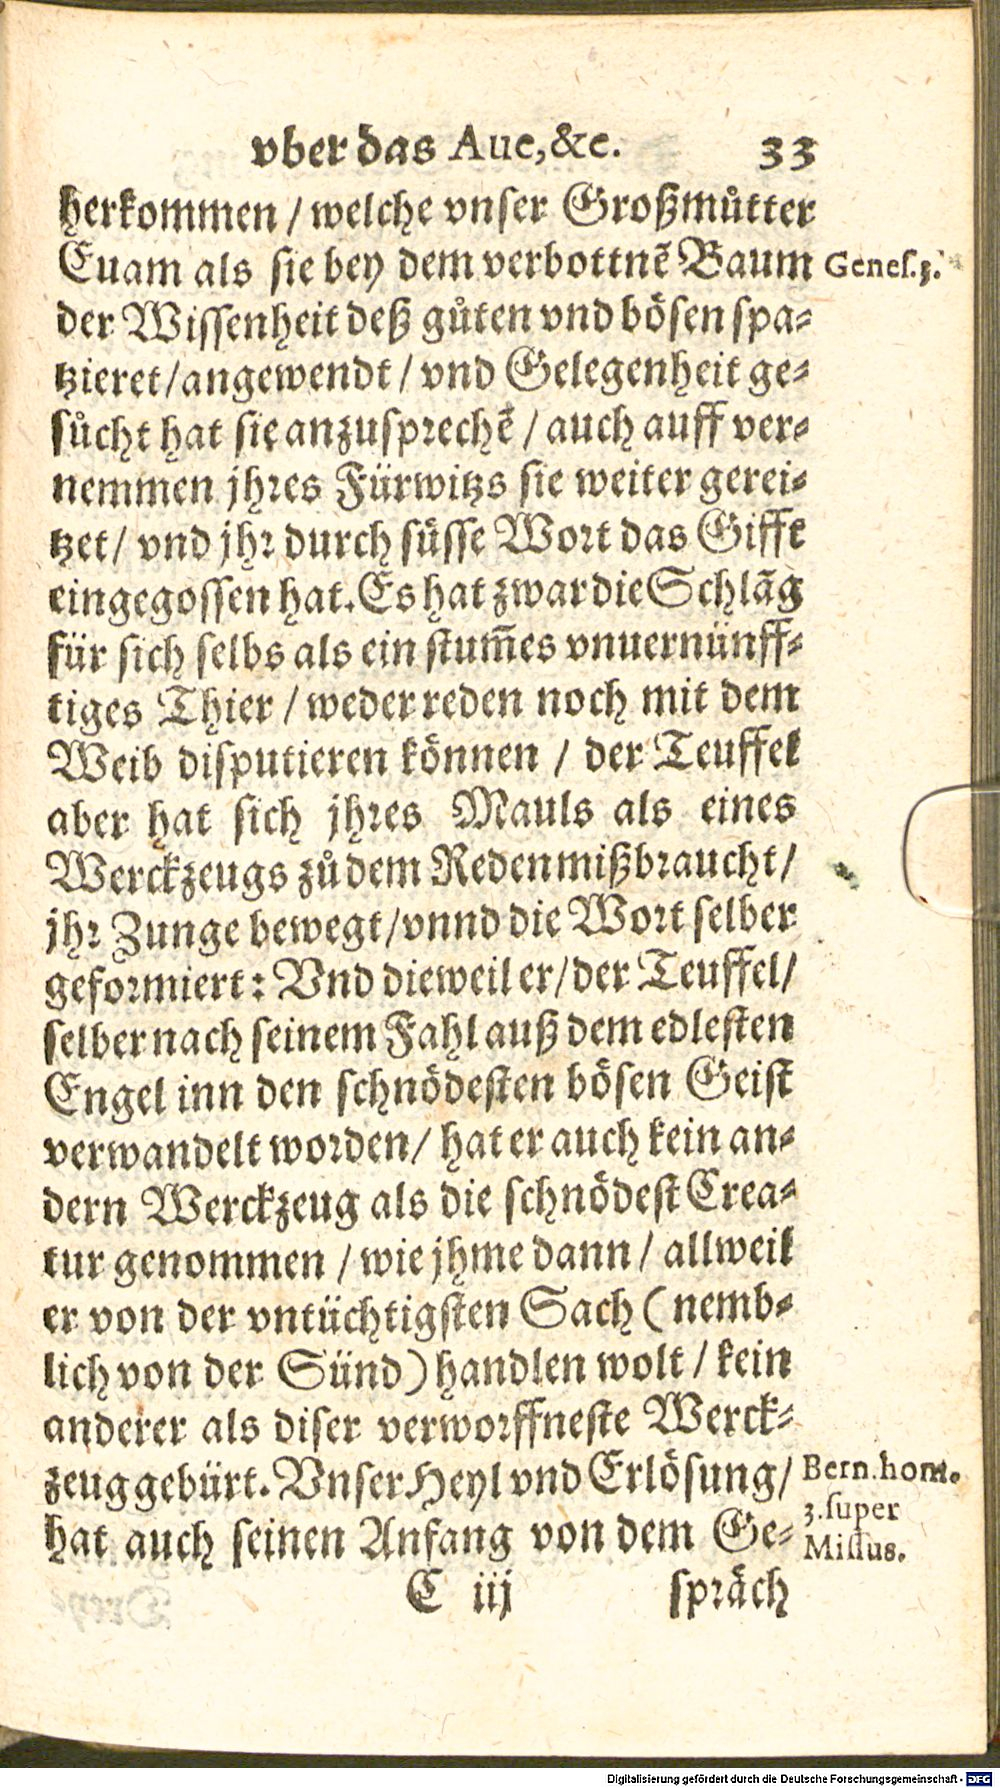 vber das Aue,&c. 33
herkommen / welche vnser Großmůtter
Euam als sie bey dem verbottnē Baum
Genes.3.
der Wissenheit deß gůten vnd bösen spa-
tzieret/angewendt / vnd Gelegenheit ge-
sůcht hat sie anzusprechē / auch auff ver-
nemmen jhres Fürwitzs sie weiter gerei-
tzet/ vnd jhr durch süsse Wort das Gifft
eingegossen hat. Es hat zwar die Schlāg
für sich selbs als ein stum̄es vnuernünff-
tiges Thier / weder reden noch mit dem
Weib disputieren können / der Teuffel
aber hat sich jhres Mauls als eines
Werckzeugs zů dem Reden mißbraucht/
jhr Zunge bewegt/vnnd die Wort selber
geformiert: Vnd dieweil er/der Teuffel/
selber nach seinem Fahl auß dem edlesten
Engel inn den schnödesten bösen Geist
verwandelt worden/ hat er auch kein an-
dern Werckzeug als die schnödest Crea-
tur genommen / wie jhme dann / allweil
er von der vntüchtigsten Sach (nemb-
lich von der Sünd) handlen wolt / kein
anderer als diser verworffneste Werck-
zeug gebürt. Vnser Heyl vnd Erlösung/
hat auch seinen Anfang von dem Ge-
Bern.hom.
3.super
Missus.
C iij spräch
Digitalisierung gefördert durch die Deutsche Forschungsgemeinschaft - DFG